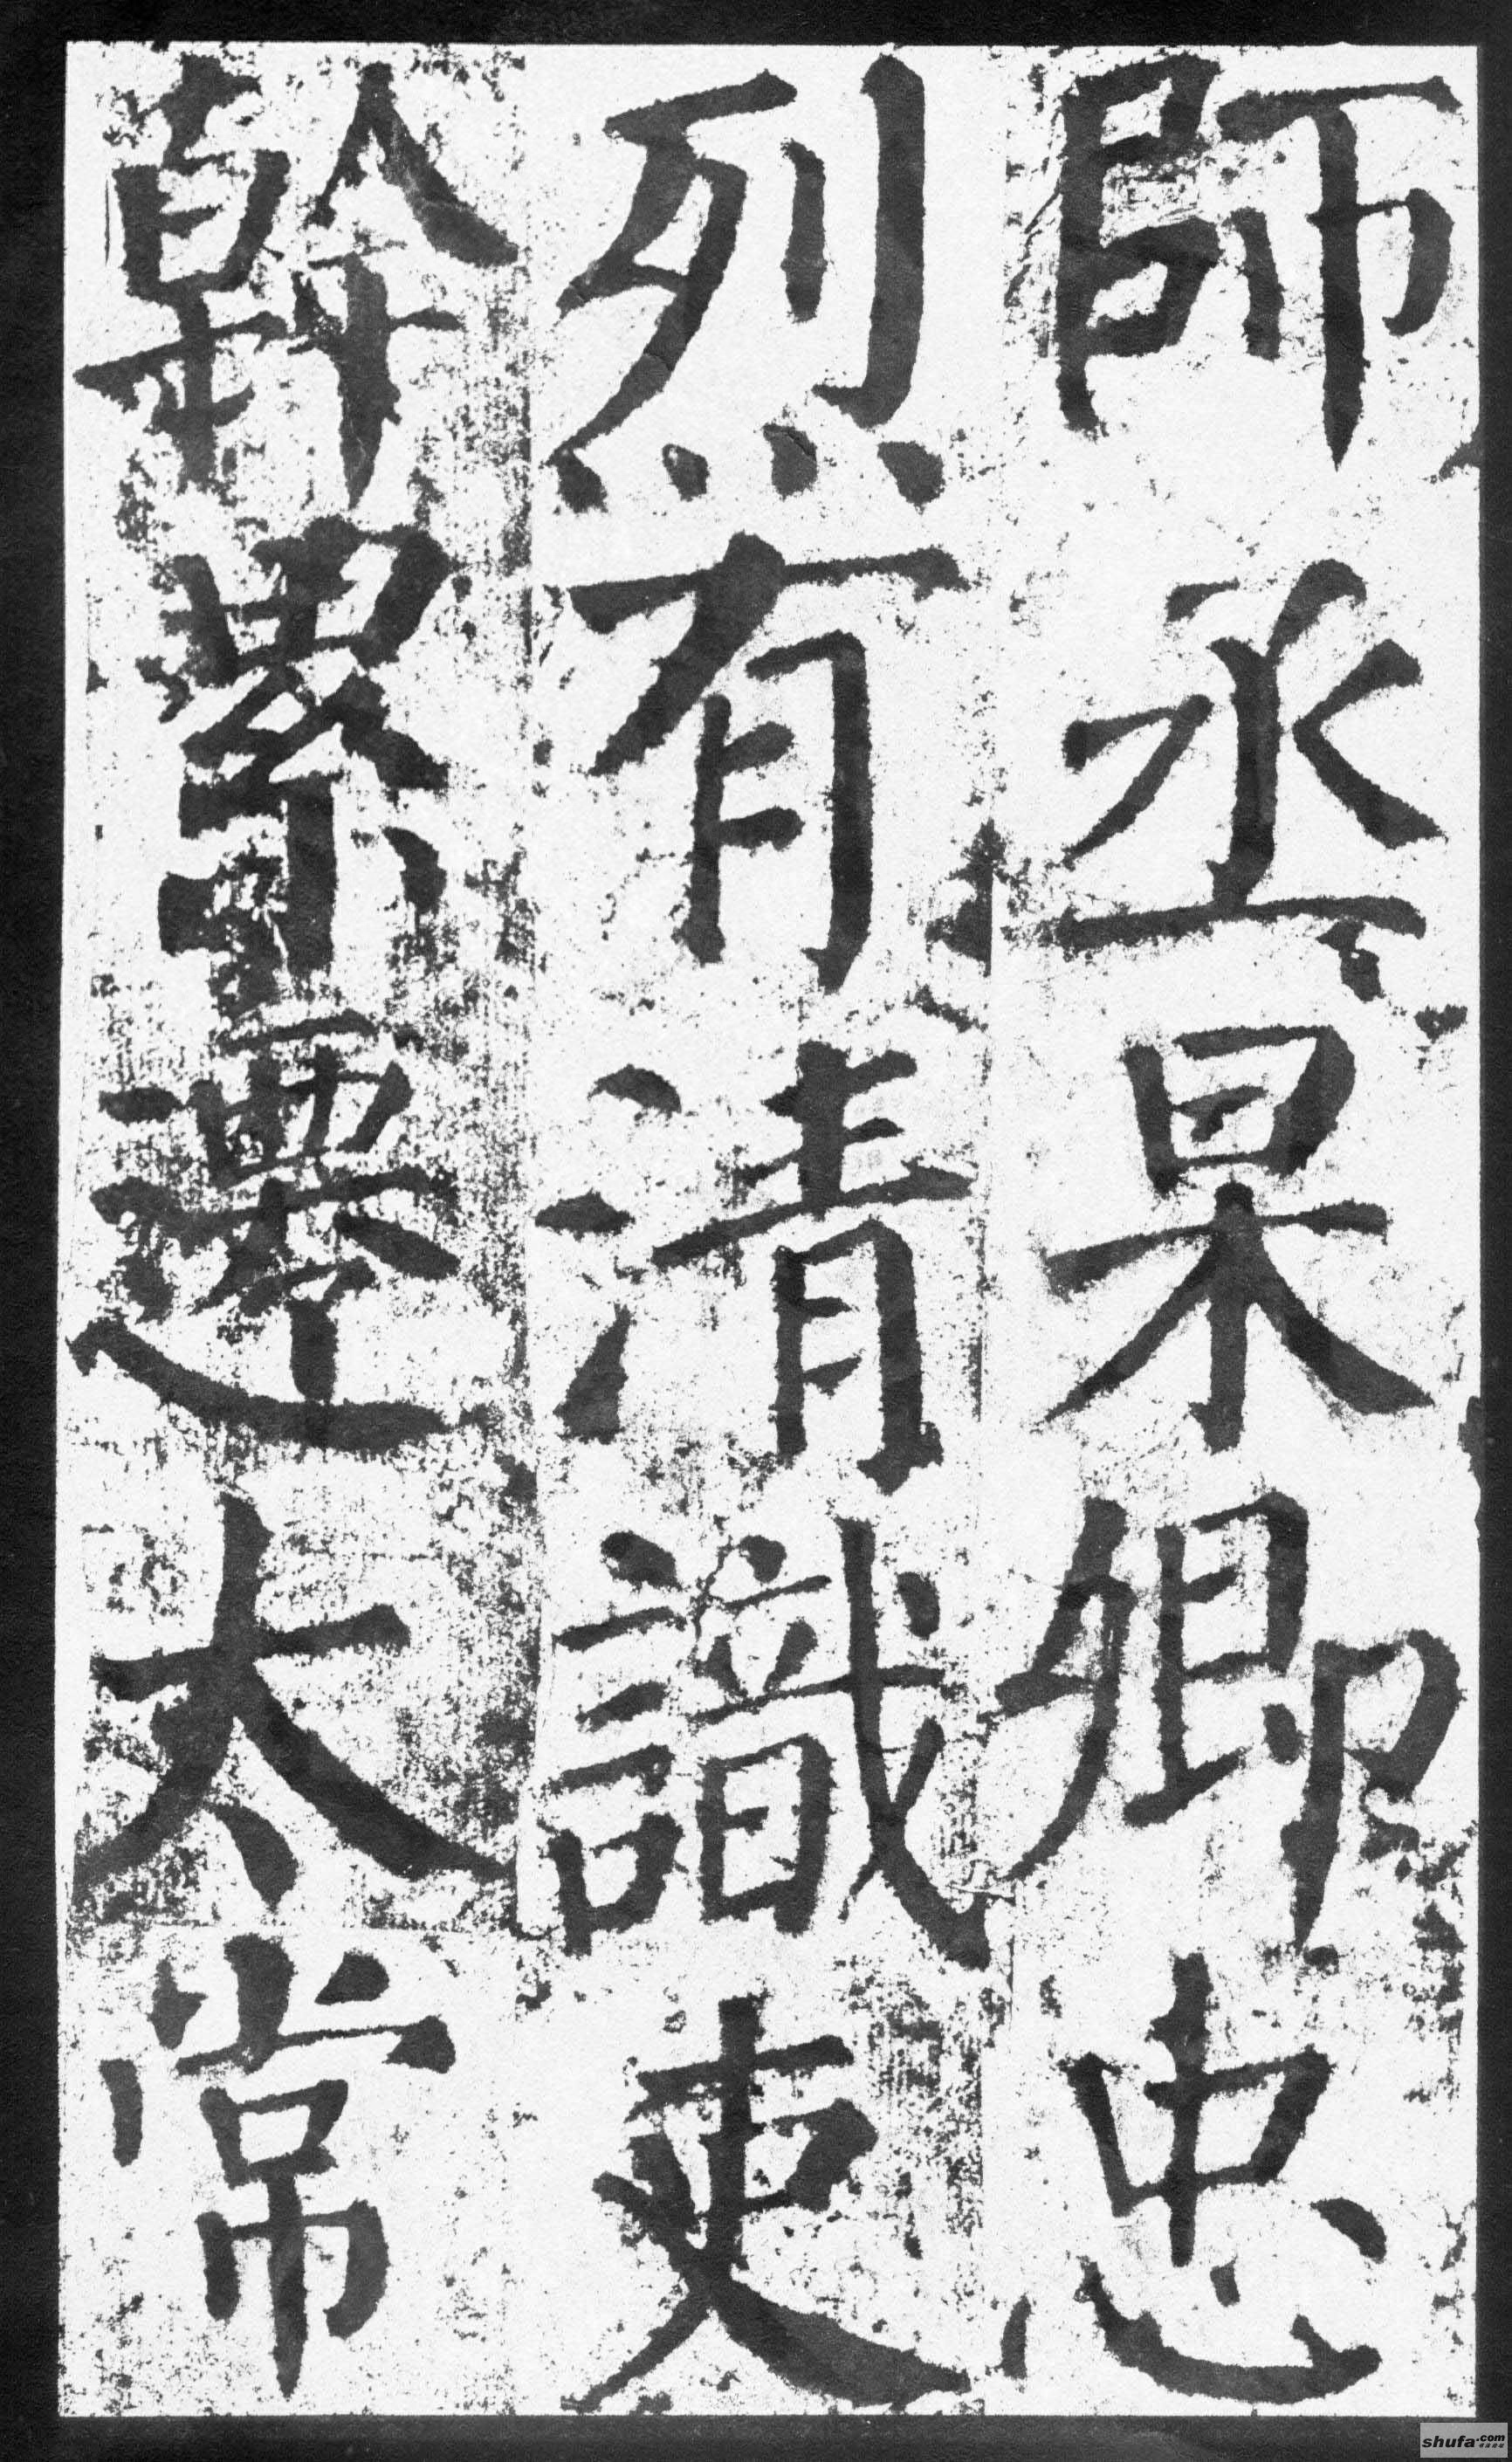 師丞杲卿忠
烈有清識吏
幹累遷太常
shufa.com